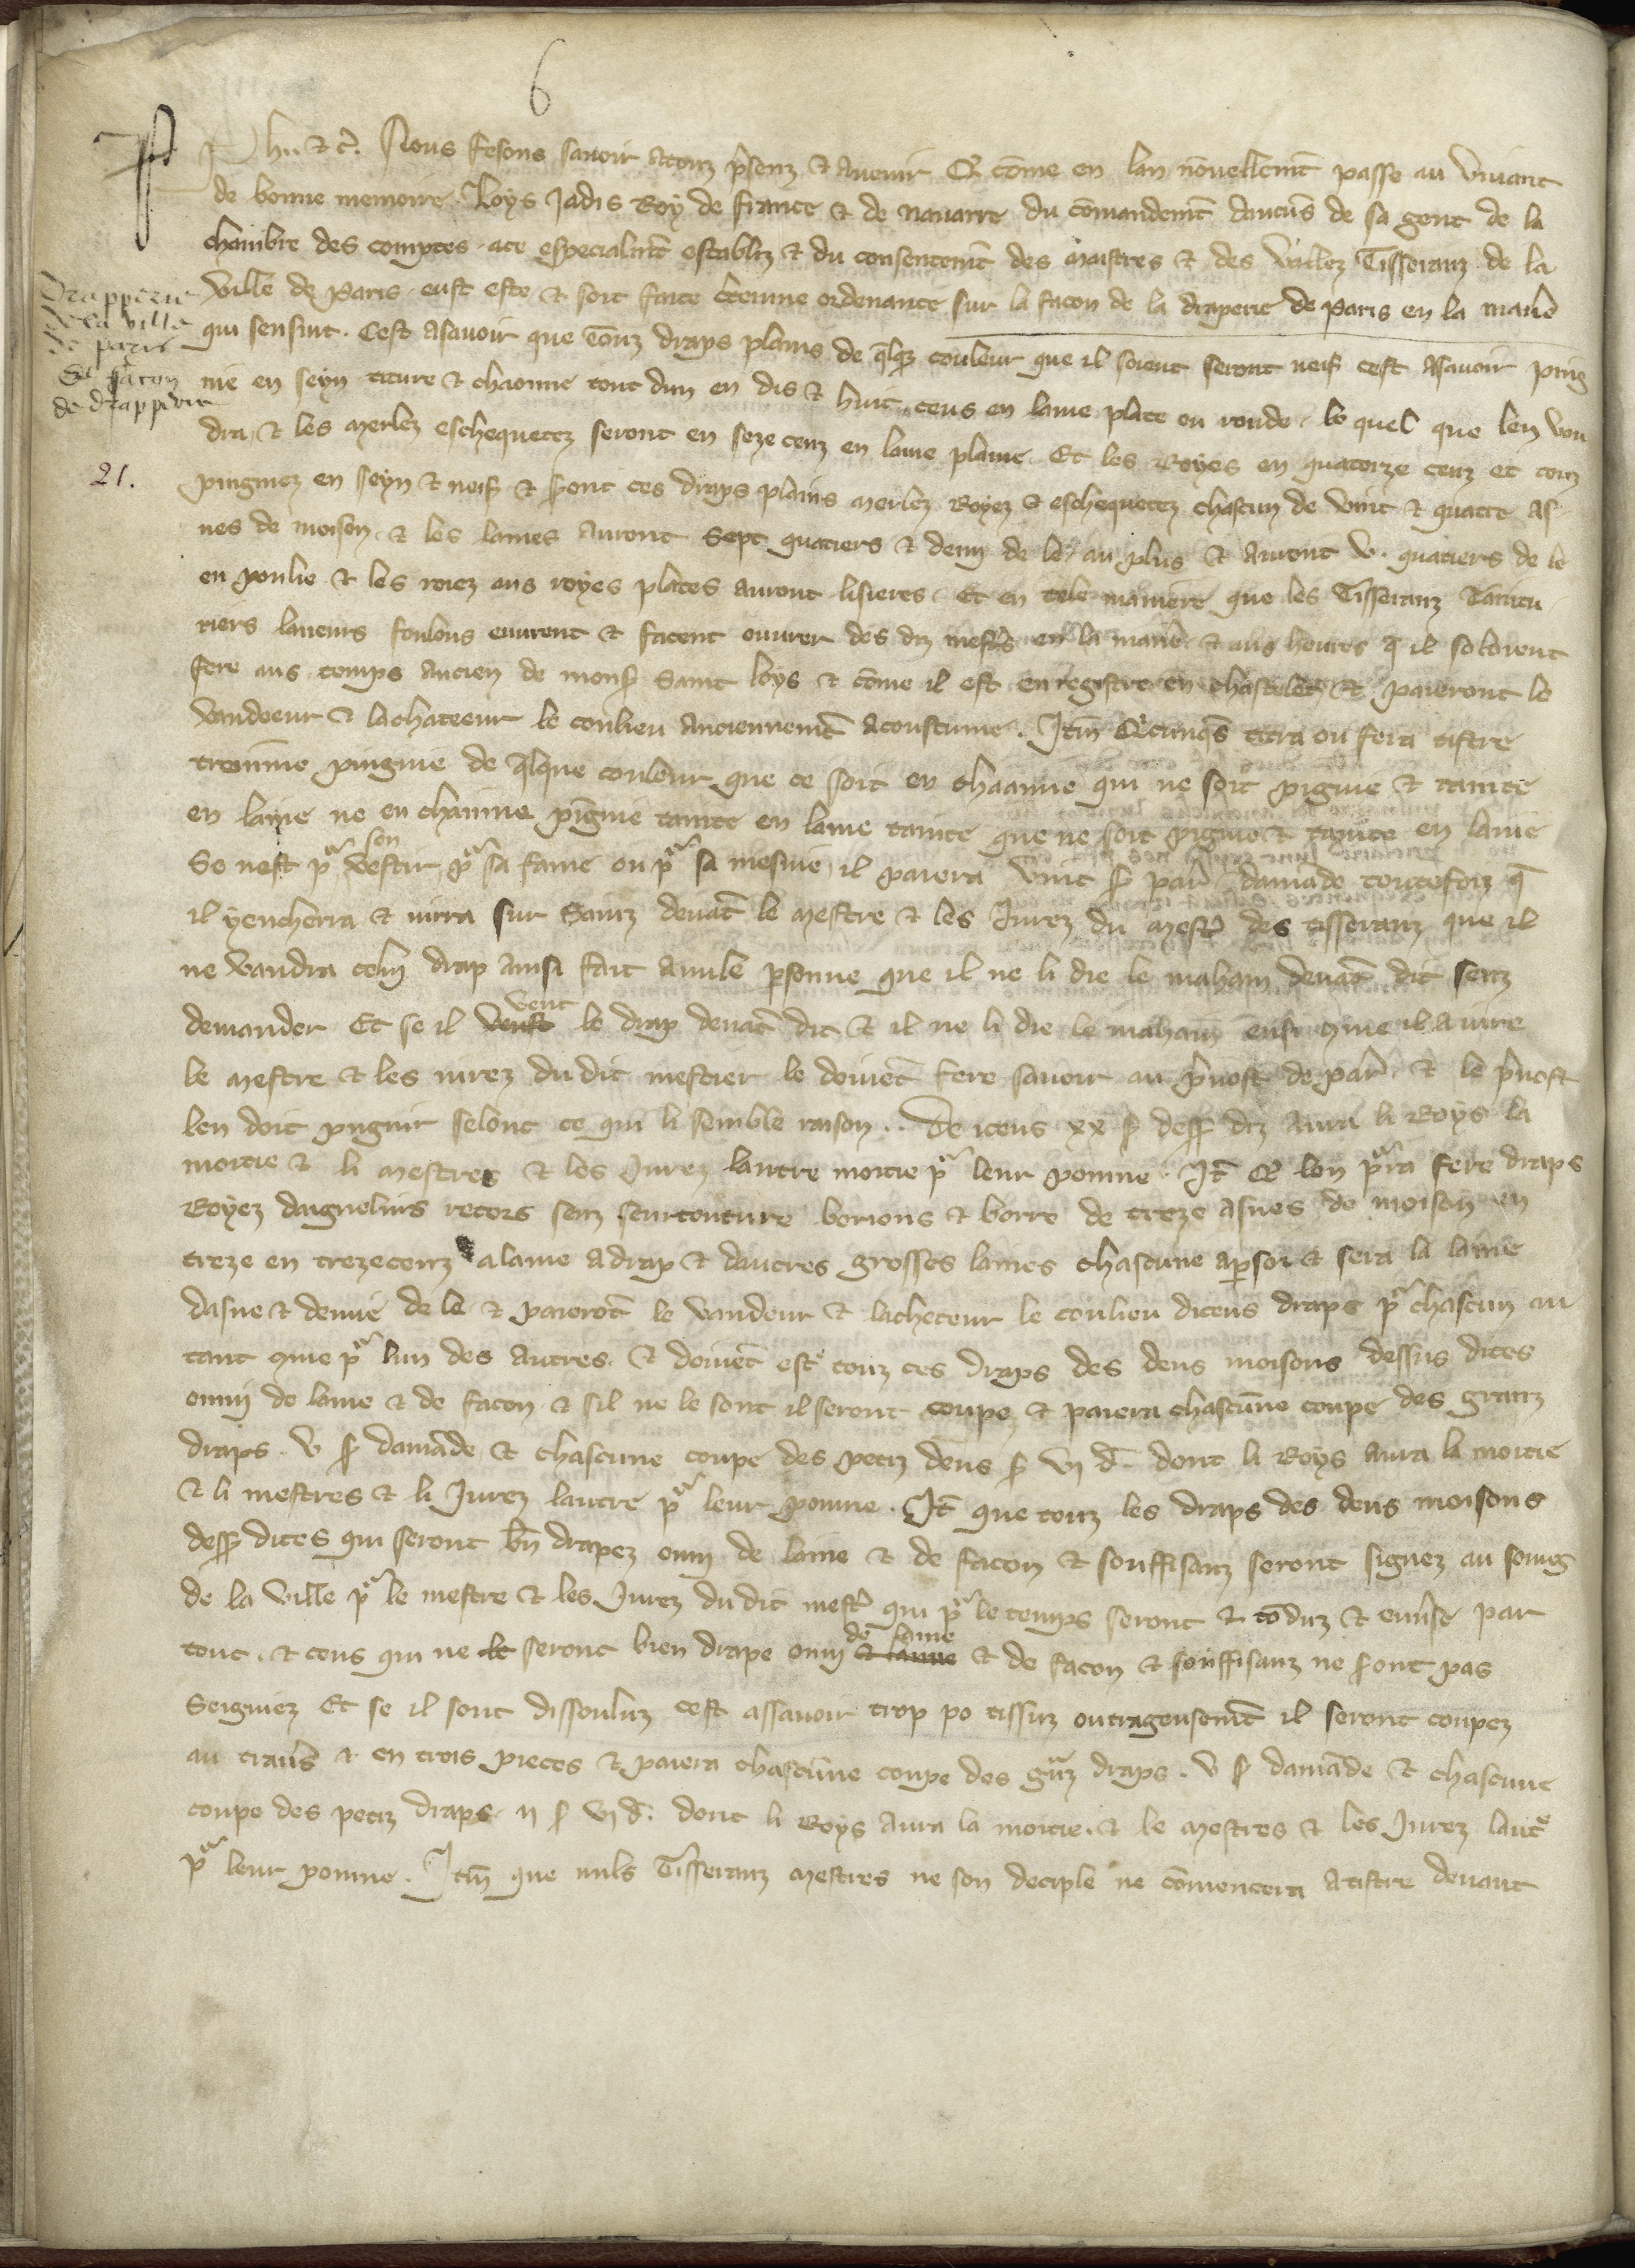 6
Ph. et c̃. Nous fesons savoir atouz p̃senz et avenir Q̃ cõme en lan nõvellemẽt passe au vivant
de bonne memoire Loys jadis Roy de france et de navarre du cõmandemẽt daucũs de sa gent de la
chambre des comptes ace especialmẽt establiz et du consentemẽt des maistres et des vallez Tisseranz de la
ville de Paris eust este et soit faite c̃teinne ordenance sur la facon de la draperie de Paris en la maniẽ
Drapperie
de la ville
de paris
Et facon
de drapperie
21.
qui sensuit. Cest asavoir que touz draps plains de q̃lq̃ couleur que il soient seront neis cest asavoir ping
nie en seyn titure et chaonne tout dun en dis et huit cens en lame plate ou ronde le quel que len vou
dra et les merlez eschequetez seront en seze cenz en lame plaine Et les Royes en quatorze cenz et touz
pingniez en seyn et neis et s̃ont ces draps plains merlez Royez et eschequetez chascun de vint et quatre as
nes de moison et les lames auront sept quatiers et demy de le au plus et auront v. quatiers de le
en poulie et les roiez aus royes plates auront lisieres Et en tele maniere que les Tisseranz Taintu
riers laneurs foulons euvrent et facent ouvrer des diz mest̃s en la maniẽ et aus heures q̃ il soloient
fere aus temps ancien de mons̃ saint loys et cõme il est enregistre en chastelet et paieront le
vandeeur et lachateeur le conlieu anciennemẽt acoustume. Itm̃ Q̃cunq̃s titra ou fera tistre
treimme pingnie de q̃lque couleur que ce soit en chaanne qui ne soit pignie et tainte
en laine ne en chainne pĩgnie tainte en laine tainte que ne soit pignie et tainte en laine
Se nest p̃ son vestir p̃ sa fame ou p̃ sa mesnie il paiera vint s̃ par̃ damãde toutefoiz q̃
il yencherra et iurra sur sainz devãt le mestre et les Jurez du mest̃ des tisseranz que il
ne vandra celuy drap ainsi fait anule p̃sonne que il ne li die le mahain devãt dit senz
demander Et se il vent le drap devãt dit et il ne li die le mahain ensi q̃me il a iure
le mestre et les iurez dudit mestier le doivẽt fere savoir au p̃vost de par̃ et le p̃vost
len doit pugnir selonc ce qui li semble raison. De iceus xx s̃ dess̃ diz aura li Roys la
moitie et li mestres et les Jurez lautre moitie p̃ leur poinne. It̃ Q̃ lon p̃ra fere draps
Royez daignelins retors senz seurtonture borions et borre de treze asnes de moison en
treze en trezecenz alaine adrap et dautres grosses laines chascune ap̃soi et sera la lame
dasne et demie de le et paierõt le vandeur et lacheteur le conlieu diceus draps p̃ chascun au
tant q̃me p̃ lun des autres. Et doivẽt est̃ touz ces draps des deus moisons dessus dites
onny de laine et de facon et sil ne le sont il seront coupe et paiera chascũne coupe des granz
draps. v s̃ damãde et chascune coupe des petiz deus s̃ vj d̃ dont li Roys aura la moitie
et li mestres et li Jurez lautre p̃ leur poinne. It̃ que touz les draps des deus moisons
dess̃ dites qui seront bñ drapez onny de laine et de facon et souffisanz seront signez au soing
de la ville p̃ le mestre et les Jurez dudit mest̃ qui p̃ le temps seront et tõduz et envẽse par
tout. et ceus qui ne seront bien drape onny de laine et de facon et souffisanz ne s̃ont pas
Seigniez Et se il sont dissouluz cest assavoir trop po tissuz outrageusemẽt il seront coupez
au travs̃ et en trois pieces et paiera chascũne coupe des grãz draps. v s̃ damãde et chascune
coupe des petiz draps ij s̃ vj d̃. dont li Roys aura la moitie. et le mestres et les Jurez laut̃
p̃ leur poinne. Itm̃ que nuls Tisseranz mestres ne son deciple ne cõmencera atistre devant